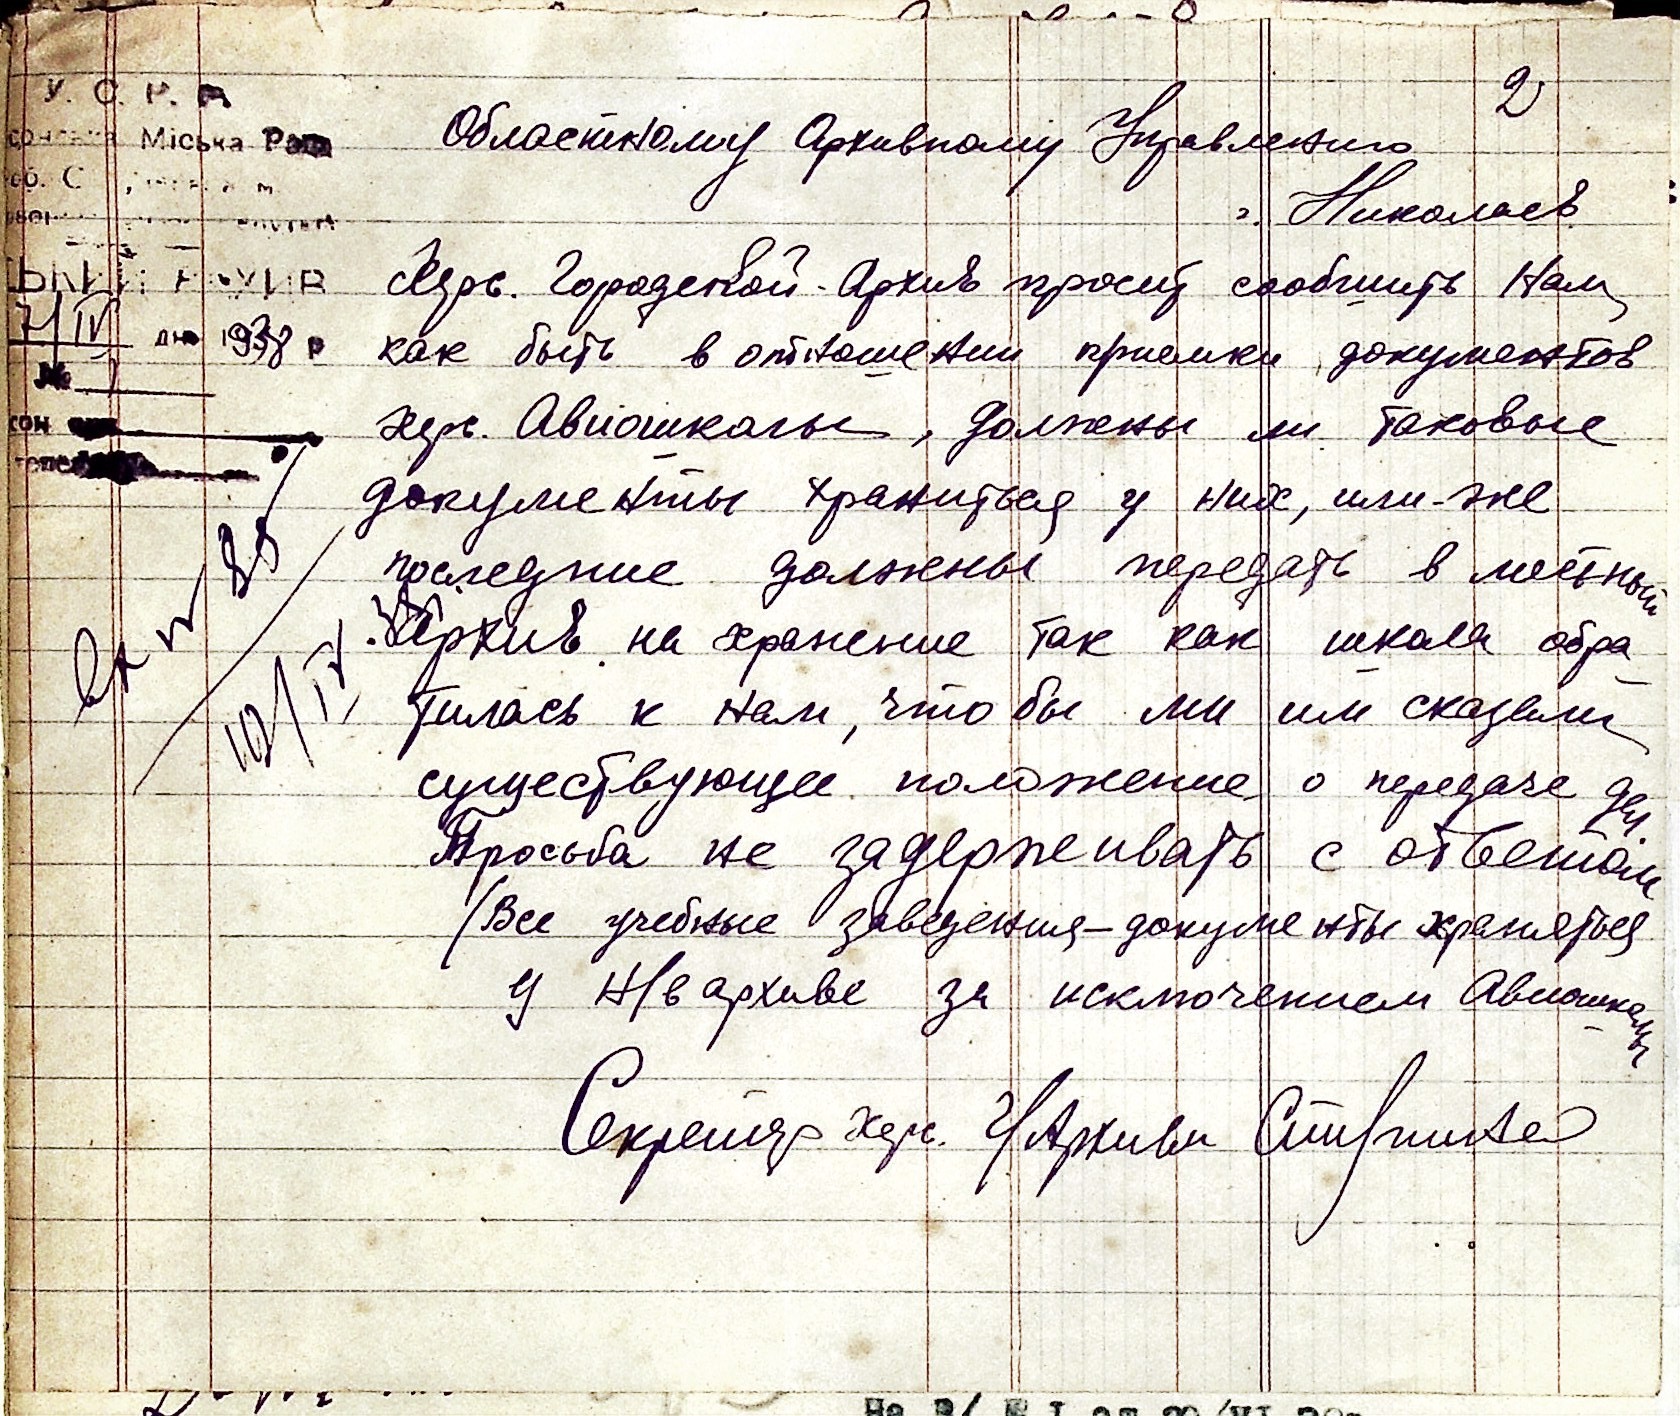 2
У. С. Р. Р.
Міська Рада
Областному Архивному Управлению
г. Николаев
7/IV дня 1938 р
№
Херс. Городской Архив просит сообщить Нам,
как быть в отношении приемки документов
херс. Авиошколы, должны ли таковые
документы храниться у них, или-же
последние должны передать в местный
Архив на хранение так как школа обра
тилась к нам, что бы ми им сказали
существующее положение о передаче дел.
Просьба не задерживать с ответом
(Все учебные заведения – документы храняться
у н/в архиве за исключением Авиошколы
Секретар херс. Г/Архива
Вх № 88
10/IV
На В/ № 1 от 20/VI 38г